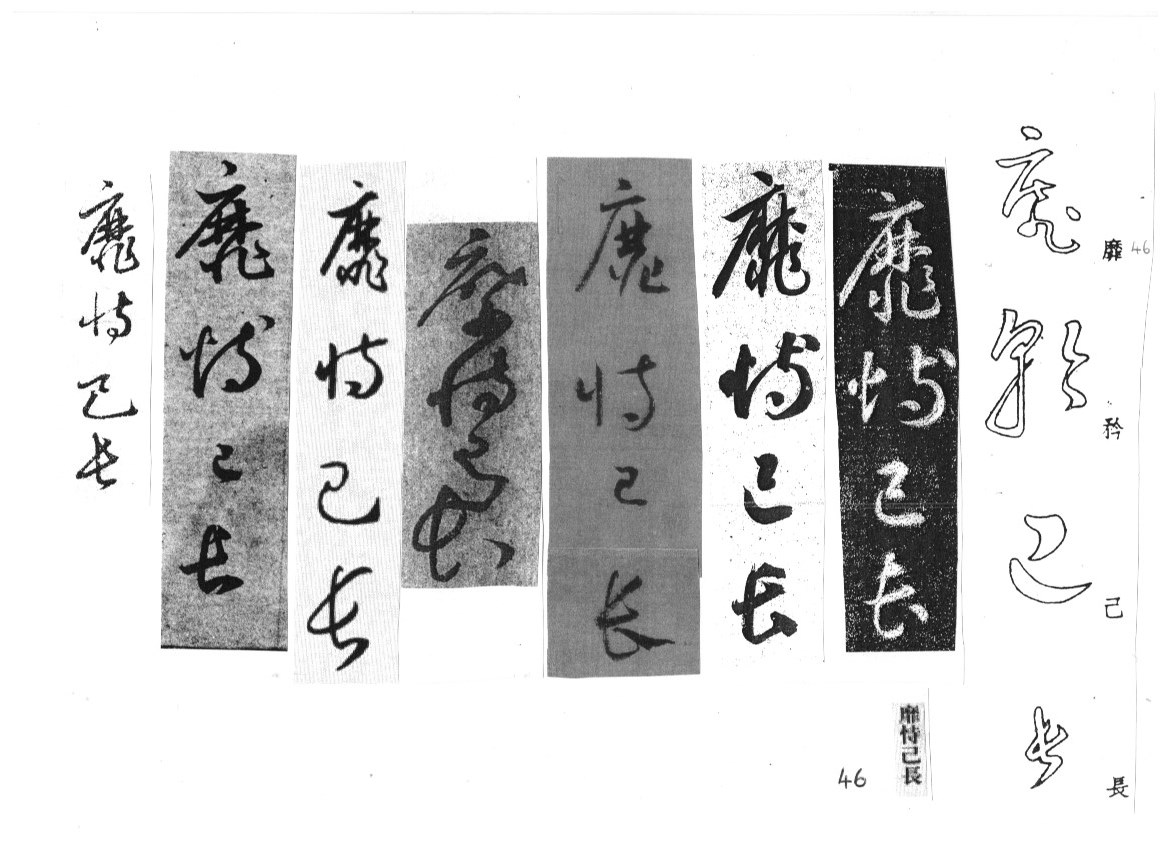 46
靡矜己長
靡矜己長
靡恃己長
靡恃己長
靡恃己長
靡恃己長
靡恃己長
靡恃己長
靡恃己長
靡恃己長
46